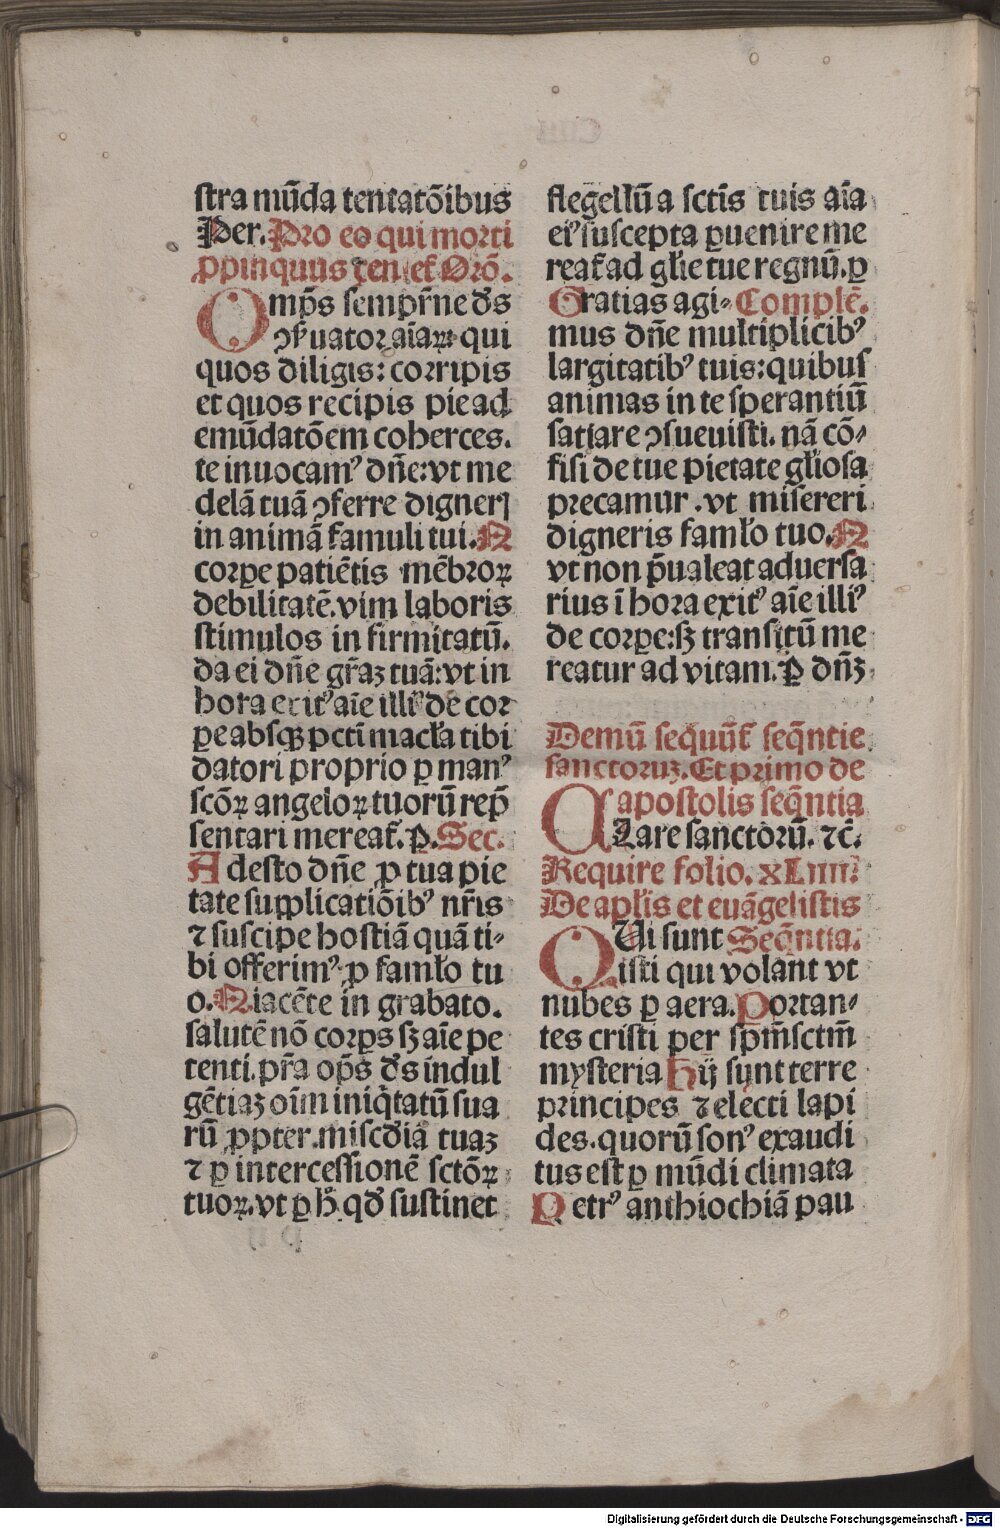 stra mūda tentatōibus
Per. Pro eo qui morti
ꝓpinquus ten et Orō.
Omp̄s semp̄rne d̄s
ꝯẜuator aīaꝝ: qui
quos diligis: corripis
et quos recipis pie ad
emūdatōem coherces.
te inuocamꝰ dn̄e: vt me
delā tuā ꝯferre digneri
in animā famuli tui. N
corꝑe patiētis mēbroꝝ
debilitatē. vim laboris
stimulos in firmitatū.
da ei dn̄e gr̄aꝫ tuā: vt in
hora exitꝰ aīe illiꝰ de cor
ꝑe absqꝫ pctī macl̄a tibi
datori proprio ꝑ manꝰ
scōꝝ angeloꝝ tuorū rep̄
sentari mereat̄. Ꝑ. Sec.
Adesto dn̄e ꝓ tua pie
tate supplicatiōibꝰ nr̄is
⁊ suscipe hostiā quā ti⸗
bi offerimꝰ ꝓ faml̄o tu
o. N iacēte in grabato.
salutē nō corꝑs sꝫ aīe pe
tenti. pr̄a op̄s d̄s indul
gētiaꝫ oīm iniq̄tatū sua
rū ꝓpter. miscd̄iā tuaꝫ
⁊ ꝑ intercessionē sctōꝝ
tuoꝝ. vt ꝑ h̄. qd̄ sustinet
flegellū a sctīs tuis aīa
eiꝰ suscepta ꝑuenire me
reat̄ ad gl̄ie tue regnū. ꝑ
Gratias agi⸗ Complē.
mus dn̄e multiplicibꝰ
largitatibꝰ tuis: quibus
animas in te sperantiū
satiare ꝯsueuisti. nā cō⸗
fisi de tue pietate gl̄iosa
precamur . vt misereri
digneris faml̄o tuo. N
vt non p̄ualeat aduersa
rius ī hora exitꝰ aīe illiꝰ
de corꝑe: sꝫ transitū me
reatur ad vitam. Ꝑ dn̄ꝫ
Demū sequūt̄ seq̄ntie
sanctoruꝫ. Et primo de
apostolis seq̄ntia
Clare sanctorū. ⁊c̄.
Require folio. xLiiii.
De apl̄is et euāgelistis
QVi sunt Seq̄ntia.
isti qui volant vt
nubes ꝑ aera. Portan⸗
tes cristi per spm̄ sctm̄
mysteria Hij sunt terre
principes ⁊ electi lapi
des. quorū sonꝰ exaudi
tus est ꝑ mūdi climata
Petrꝰ anthiochiā pau
Digitalisierung gefördert durch die Deutsche Forschungsgemeinschaft - DFG